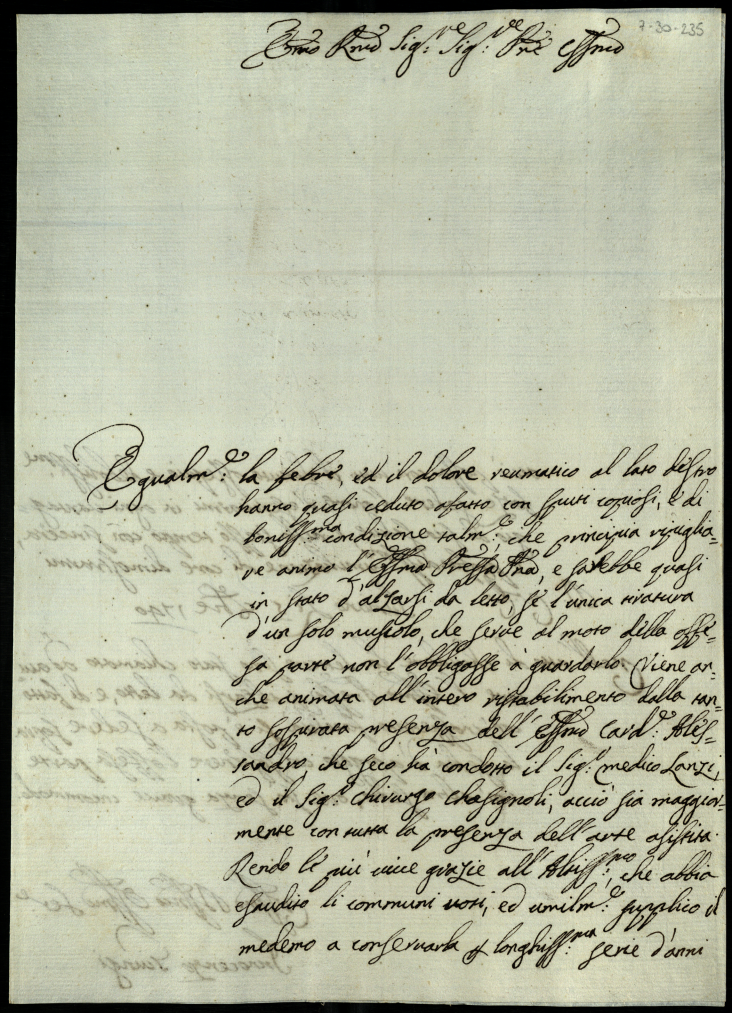 7-30-235
Emo Rmo Sig:re Sig:re Pre Essmo
Egualm:e la febre, ed il dolore reumatico al lato destro
hanno quasi ceduto afatto con sputi copiosi, e di
boniss:ma condizione talm:e che principia ripiglia=
re animo l'Essma Pressa Pna, e sarebbe quasi
in stato d'alzarsi da letto, se l'unica tiratura
d'un solo muscolo, che serve al moto della offe=
sa parte non l'obbligasse à guardarlo. Viene an=
che animata all'intero ristabilimento dalla tan=
to sospirata presenza dell'Essmo Card:e Ales=
sandro che seco hà condotto il Sig:r medico Lanzi,
ed il Sig:r chirurgo Chasignoli, acciò sia maggior=
mente con tutta la presenza dell'arte asistita.
Rendo le più vive grazie all'Altiss:mo, che abbia
esaudito li communi voti, ed umilm:e supplico il
medemo a conservarla p longhiss:ma serie d'anni